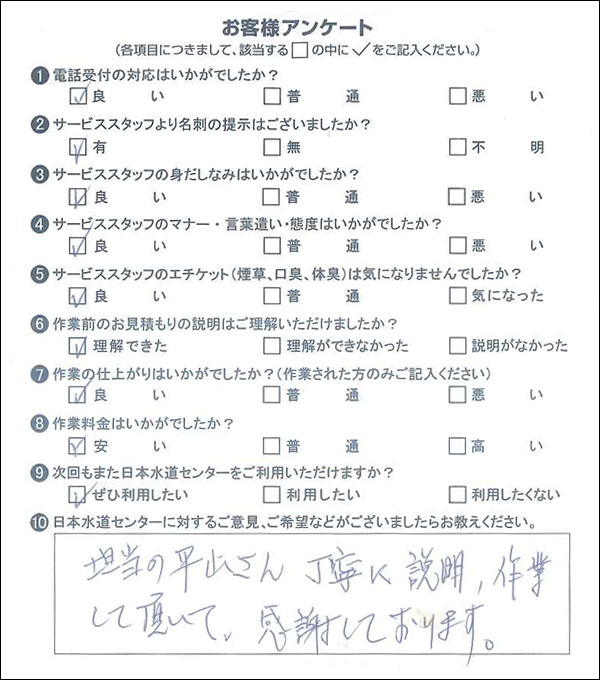 お客様アンケート
(各項目につきまして、該当する□の中に✓をご記入ください。)
❶電話受付の対応はいかがでしたか?
☑良い □普通 □悪い
❷サービススタッフより名刺の提示はございましたか?
☑有 □無 □不明
❸サービススタッフの身だしなみはいかがでしたか?
☑良い □普通 □悪い
❹サービススタッフのマナー・言葉遣い・態度はいかがでしたか?
☑良い □普通 □悪い
❺サービススタッフのエチケット(煙草、口臭、体臭)は気になりませんでしたか?
☑良い □普通 □気になった
❻作業前のお見積もりの説明はご理解いただけましたか?
☑理解できた □理解ができなかった □説明がなかった
❼作業の仕上がりはいかがでしたか?(作業された方のみご記入ください)
☑良い □普通 □悪い
❽作業料金はいかがでしたか?
☑安い □普通 □高い
❾次回もまた日本水道センターをご利用いただけますか?
☑ぜひ利用したい □利用したい □利用したくない
❿日本水道センターに対するご意見、ご希望などがございましたらお教えください。
担当の平山さん 丁寧に説明,作業
して頂いて、感謝しております。